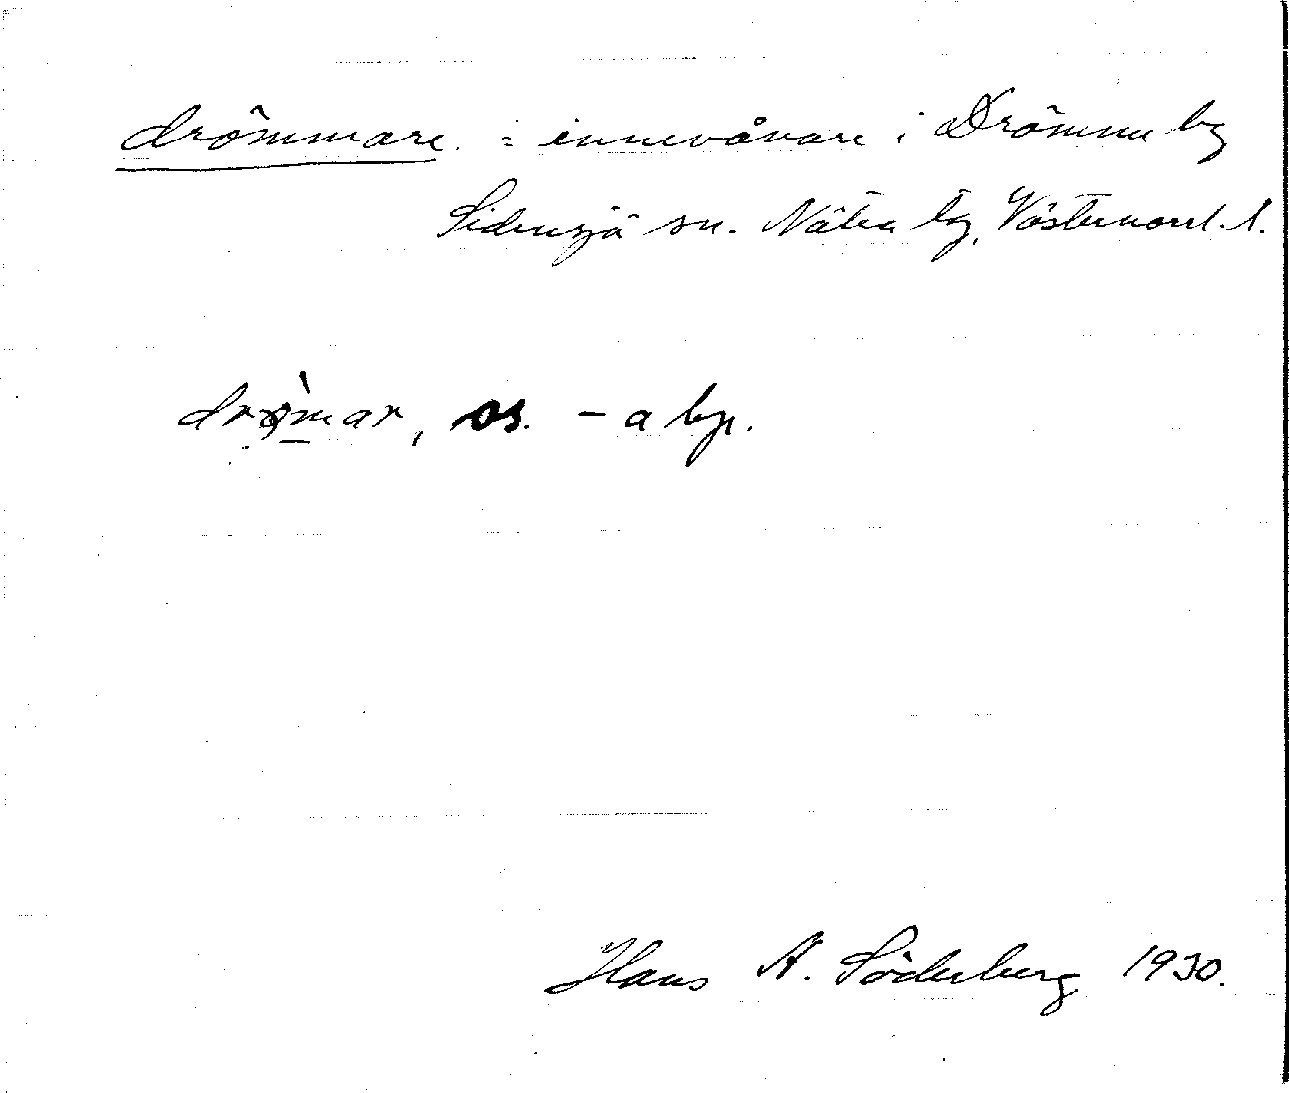 drömmare = innevånare i Drömme by
Sidensjö sn. Nätra tg, Västernorrl. l.
drömar, os. – a bp.
Hans A. Söderberg 1930.